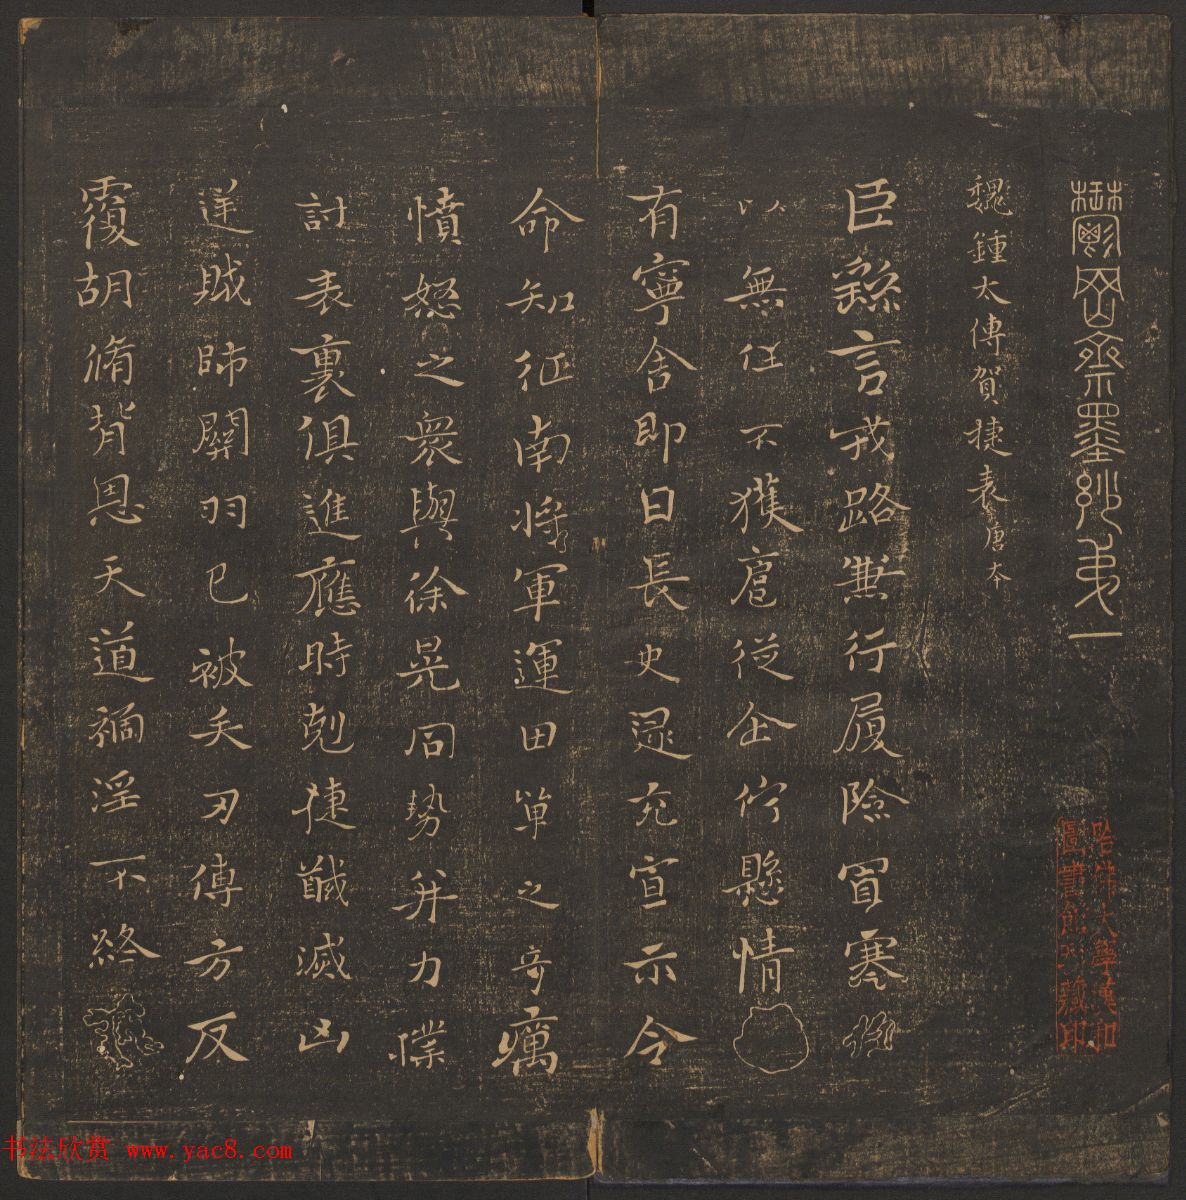 鬱岡齋墨妙弟一
魏鍾太傅賀捷表唐本
臣繇言戎路兼行履險冒寒
以無任不獲扈從企佇懸情
有寧舍即日長史逯充宣示令
命知征南將軍運田單之奇厲
憤怒之衆與徐晃同勢并力㩸
討表裏俱進應時剋捷馘滅凶
逆賊帥關羽已被矢刃傅方反
覆胡脩背恩天道禍淫不終
哈佛大學漢和
圖書館珍藏印
书法欣赏 www.yac8.com